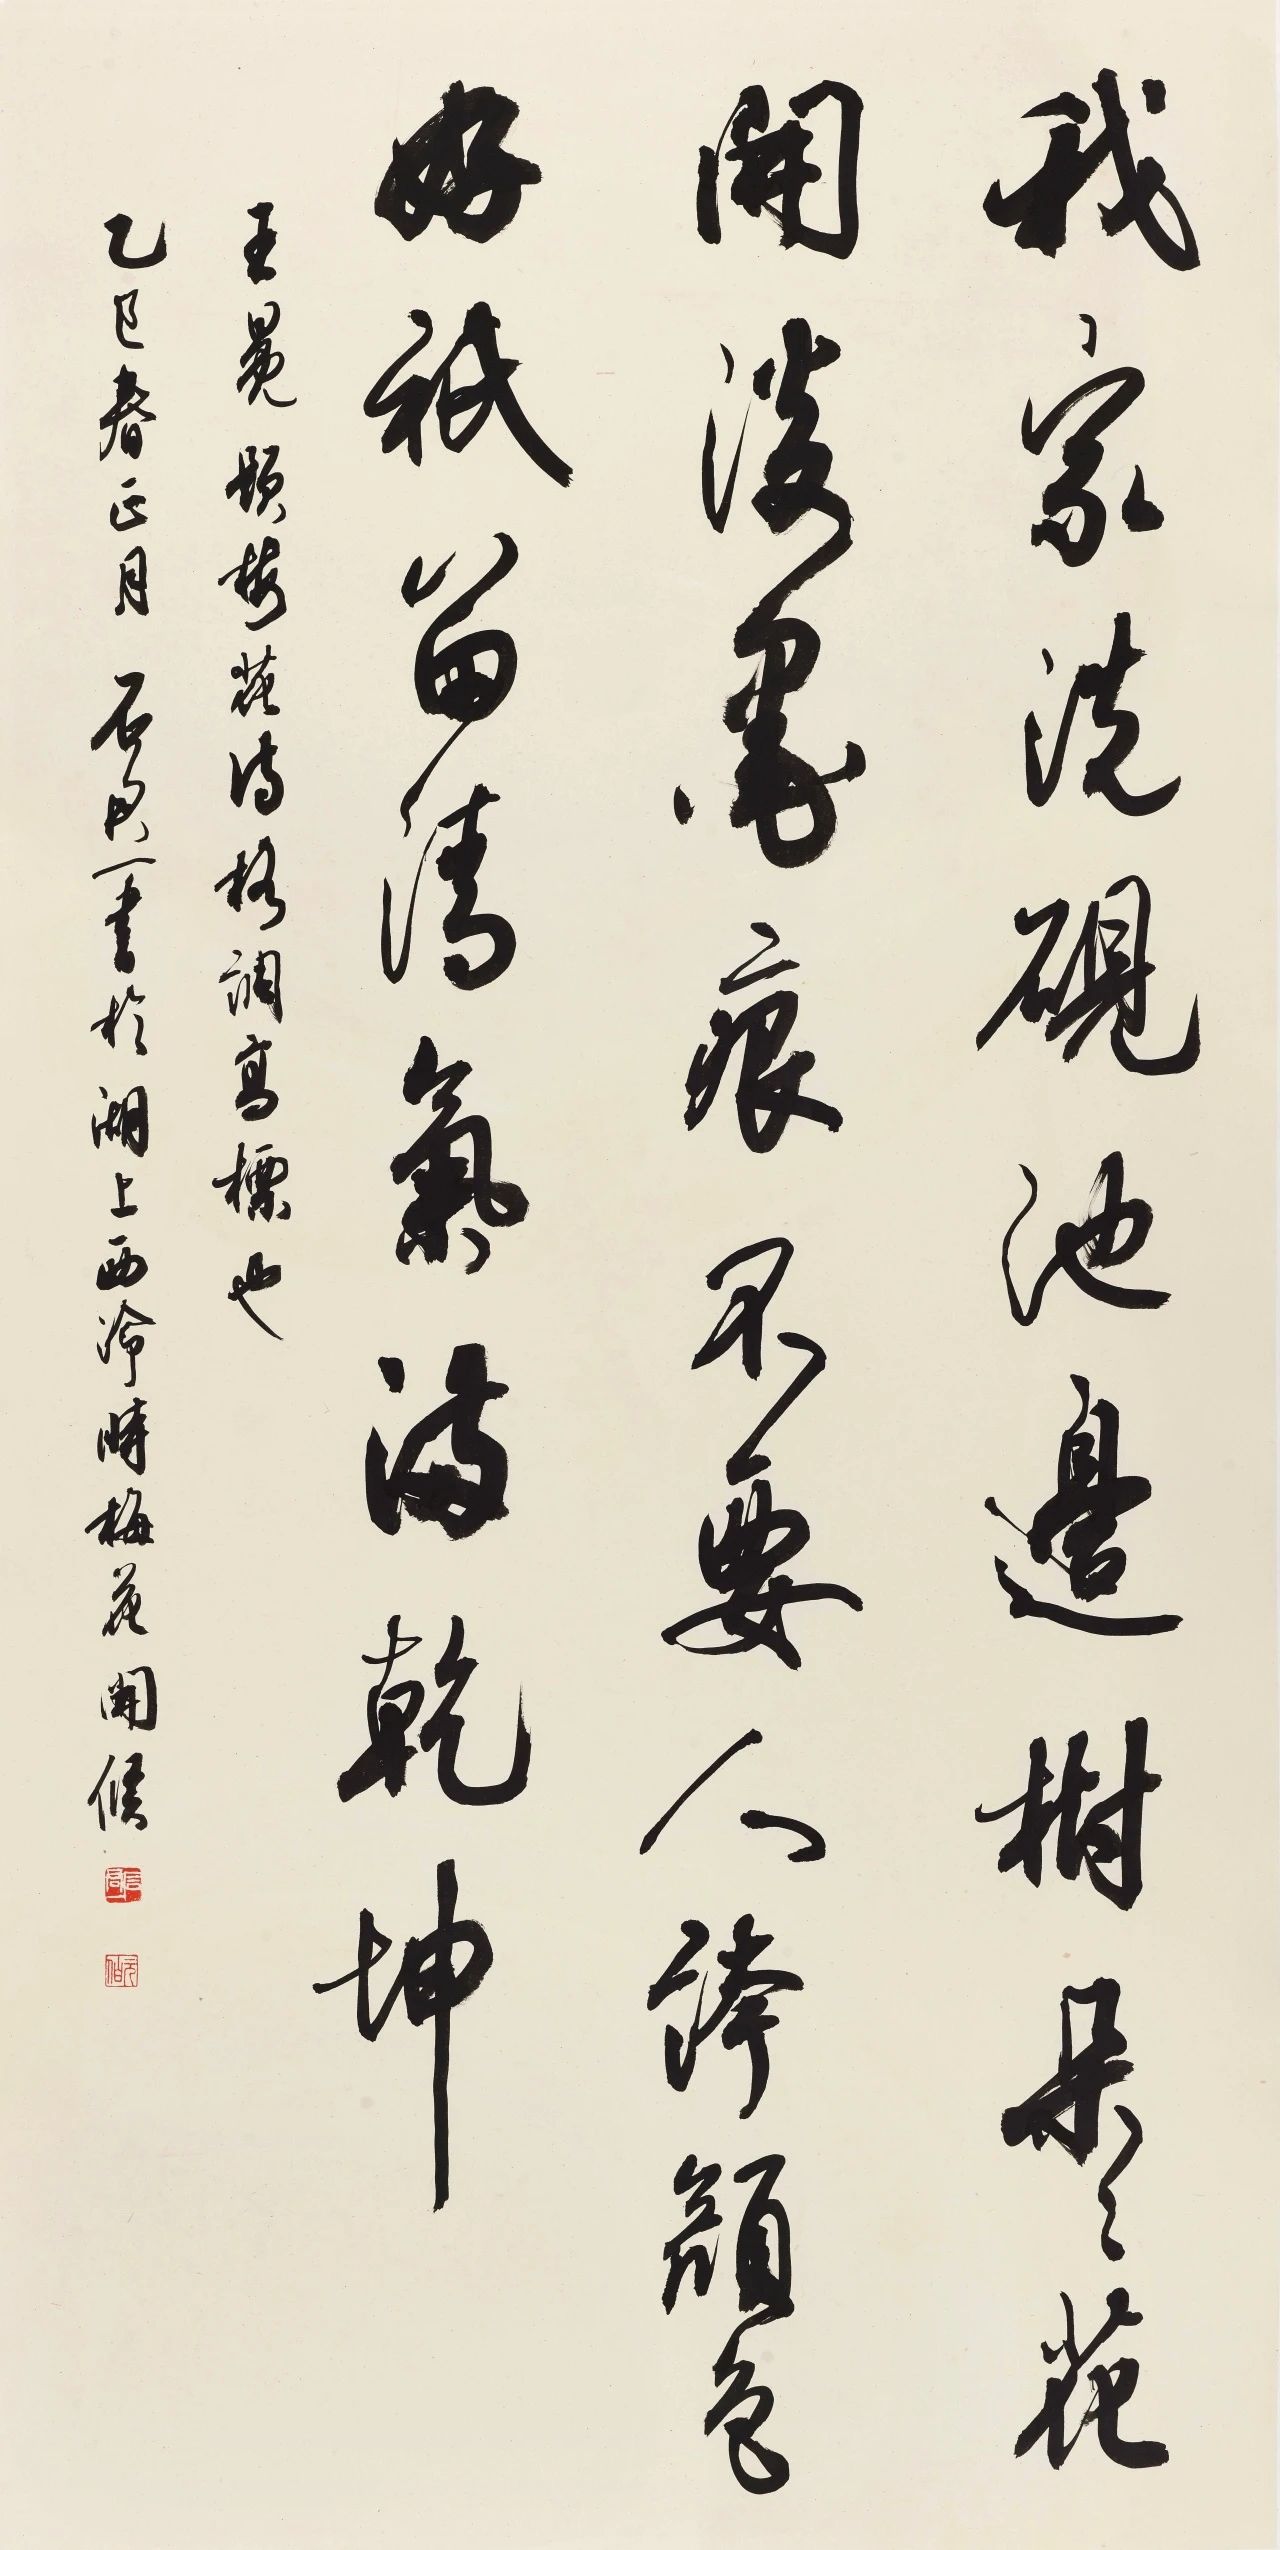 我家洗硯池邊樹朵々花
開淡墨痕不要人誇顏色
好祇留清氣滿乾坤
王冕題梅花詩格調高標也
乙巳春正月石君一書於湖上西泠時梅花開候